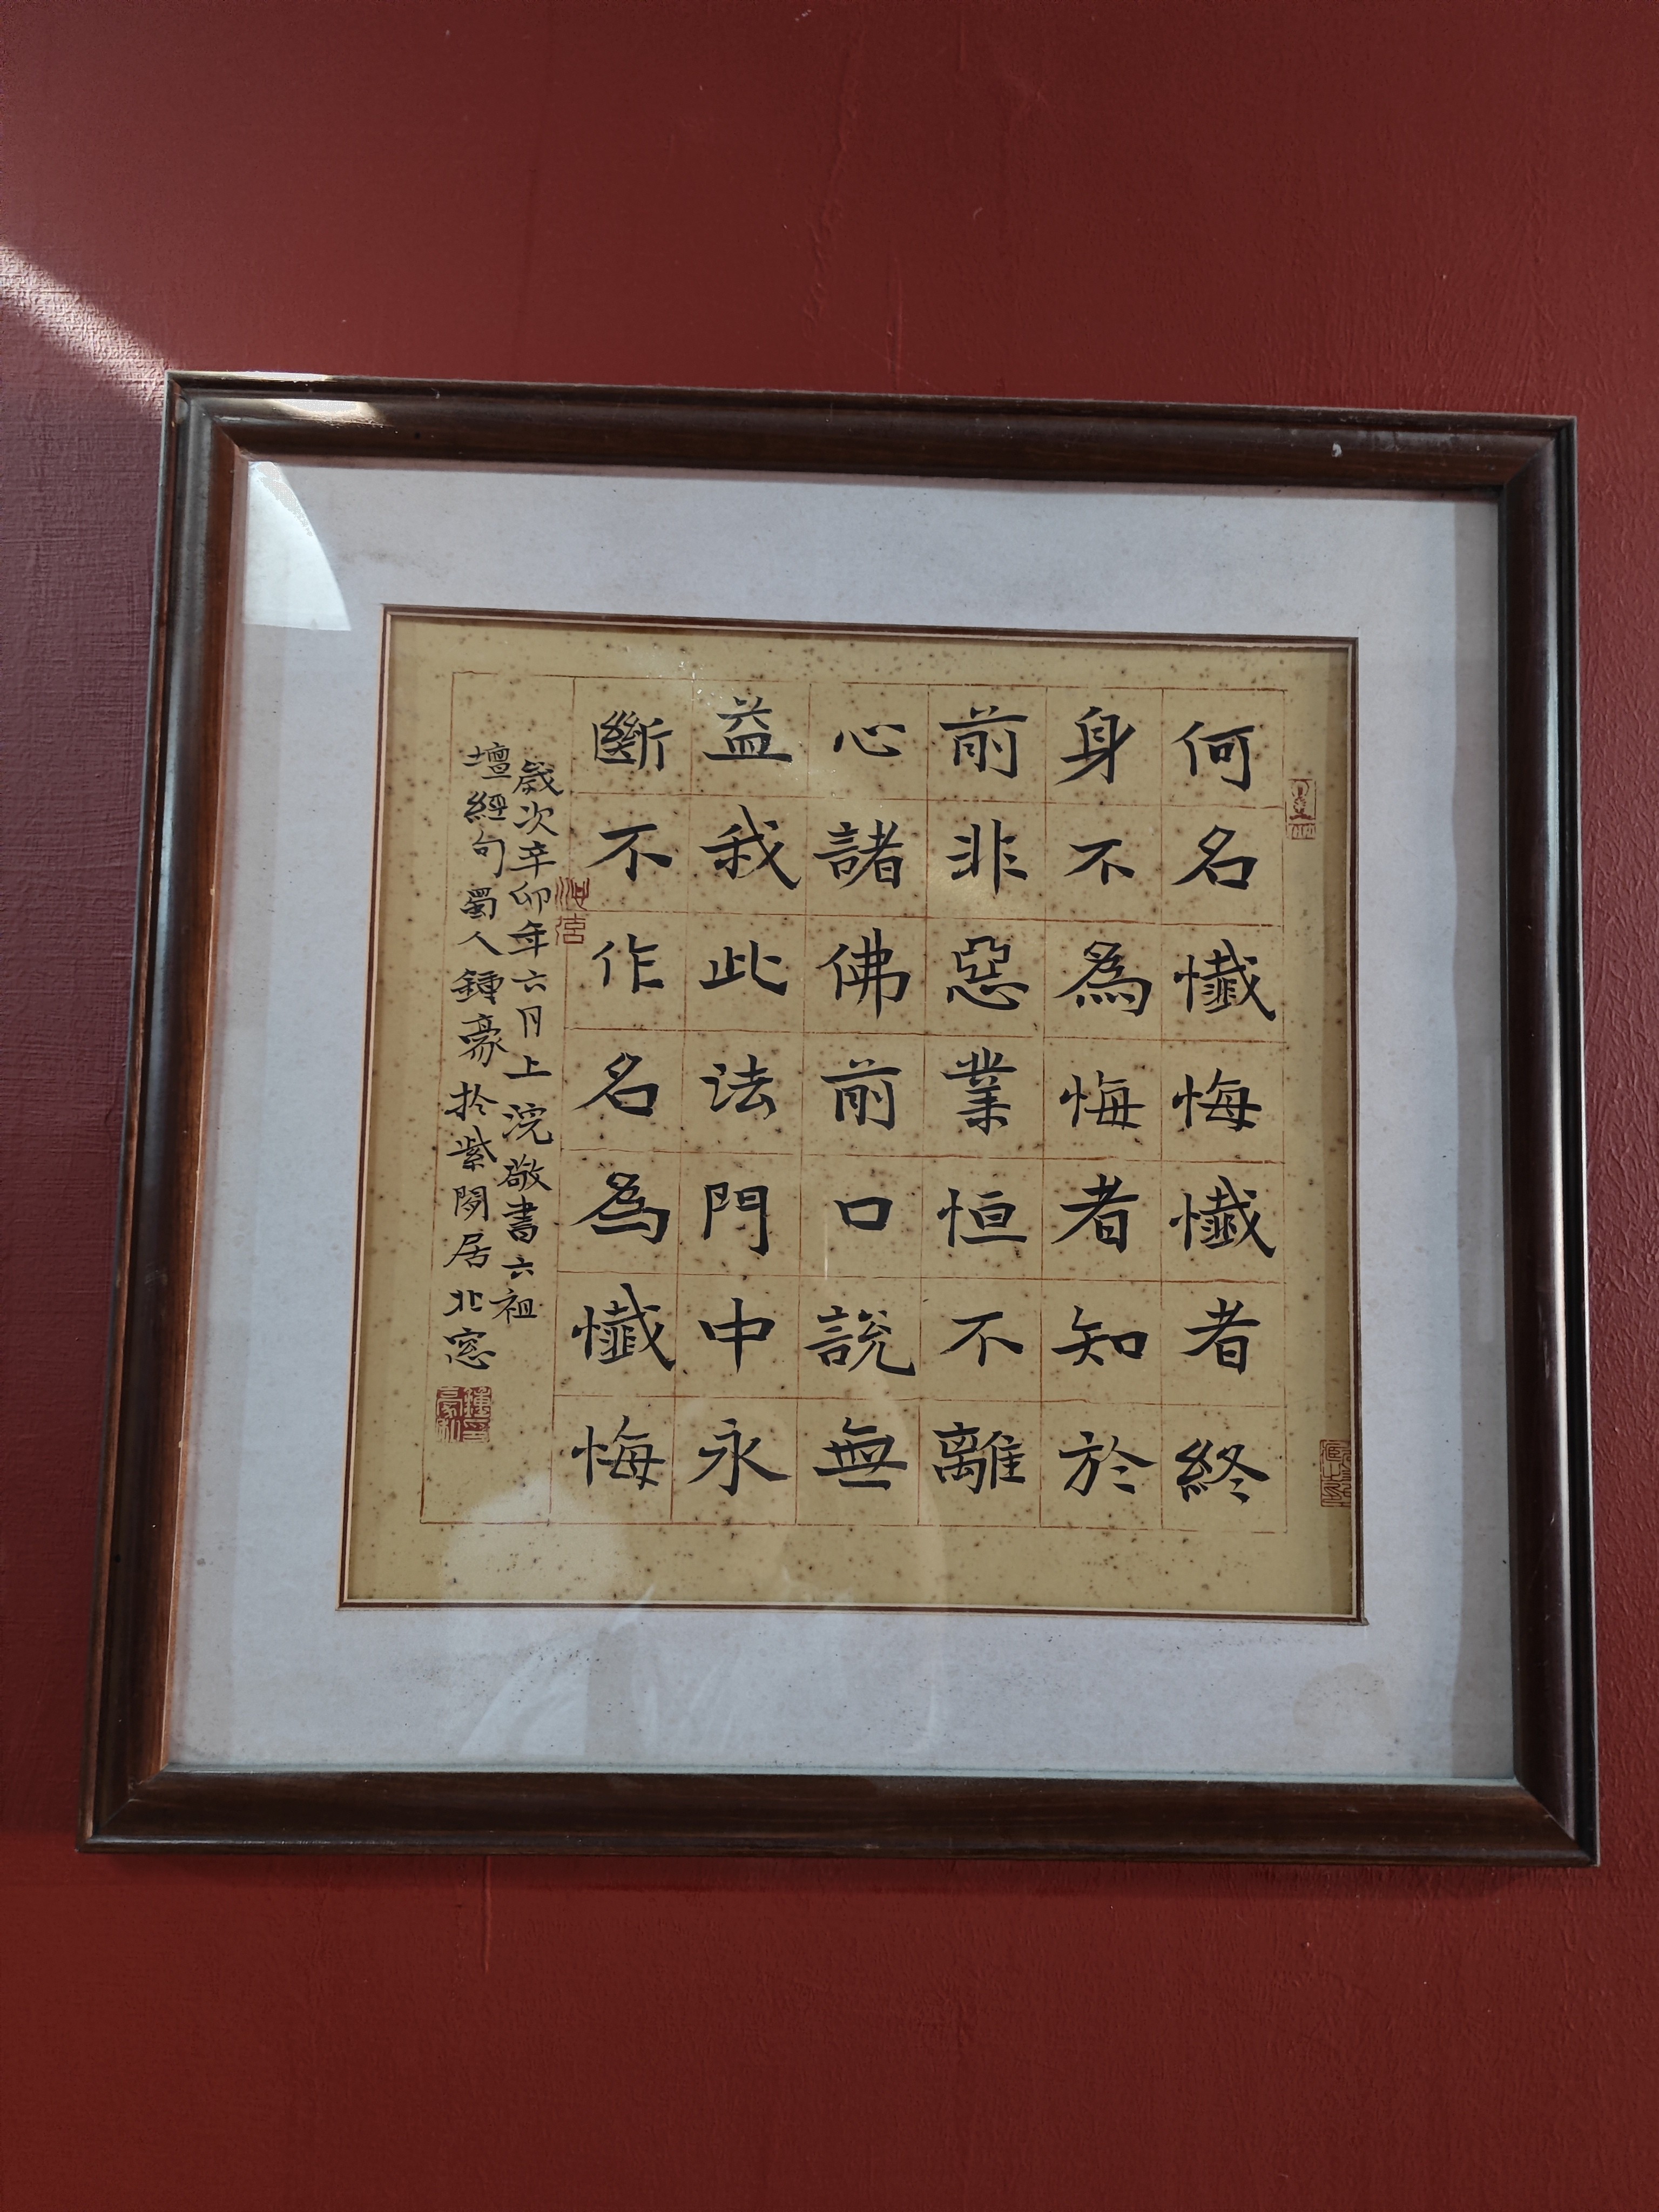 何名懺悔懺者終
身不為悔者知於
前非惡業恒不離
心諸佛前口說無
益我此法門中永
斷不作名為懺悔
歲次辛卯年六月上浣敬書六祖
壇經句蜀人鍾豪於紫閑居北窓